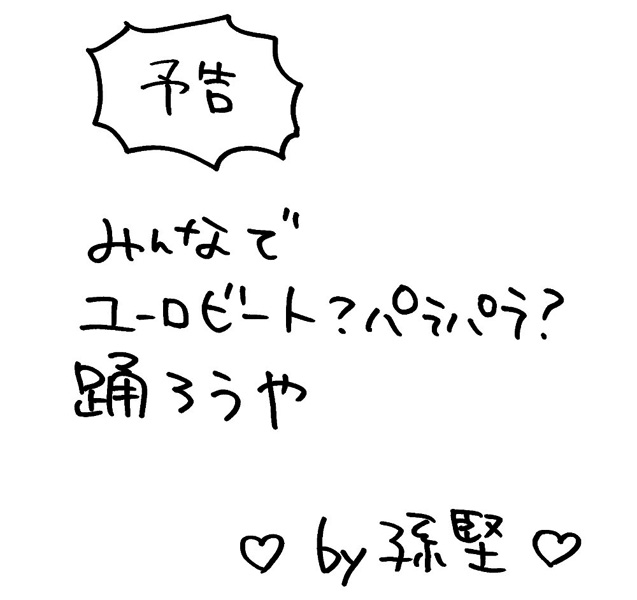 予告
みんなで
ユーロビート?パラパラ?
踊ろうや
♡ by 孫堅 ♡